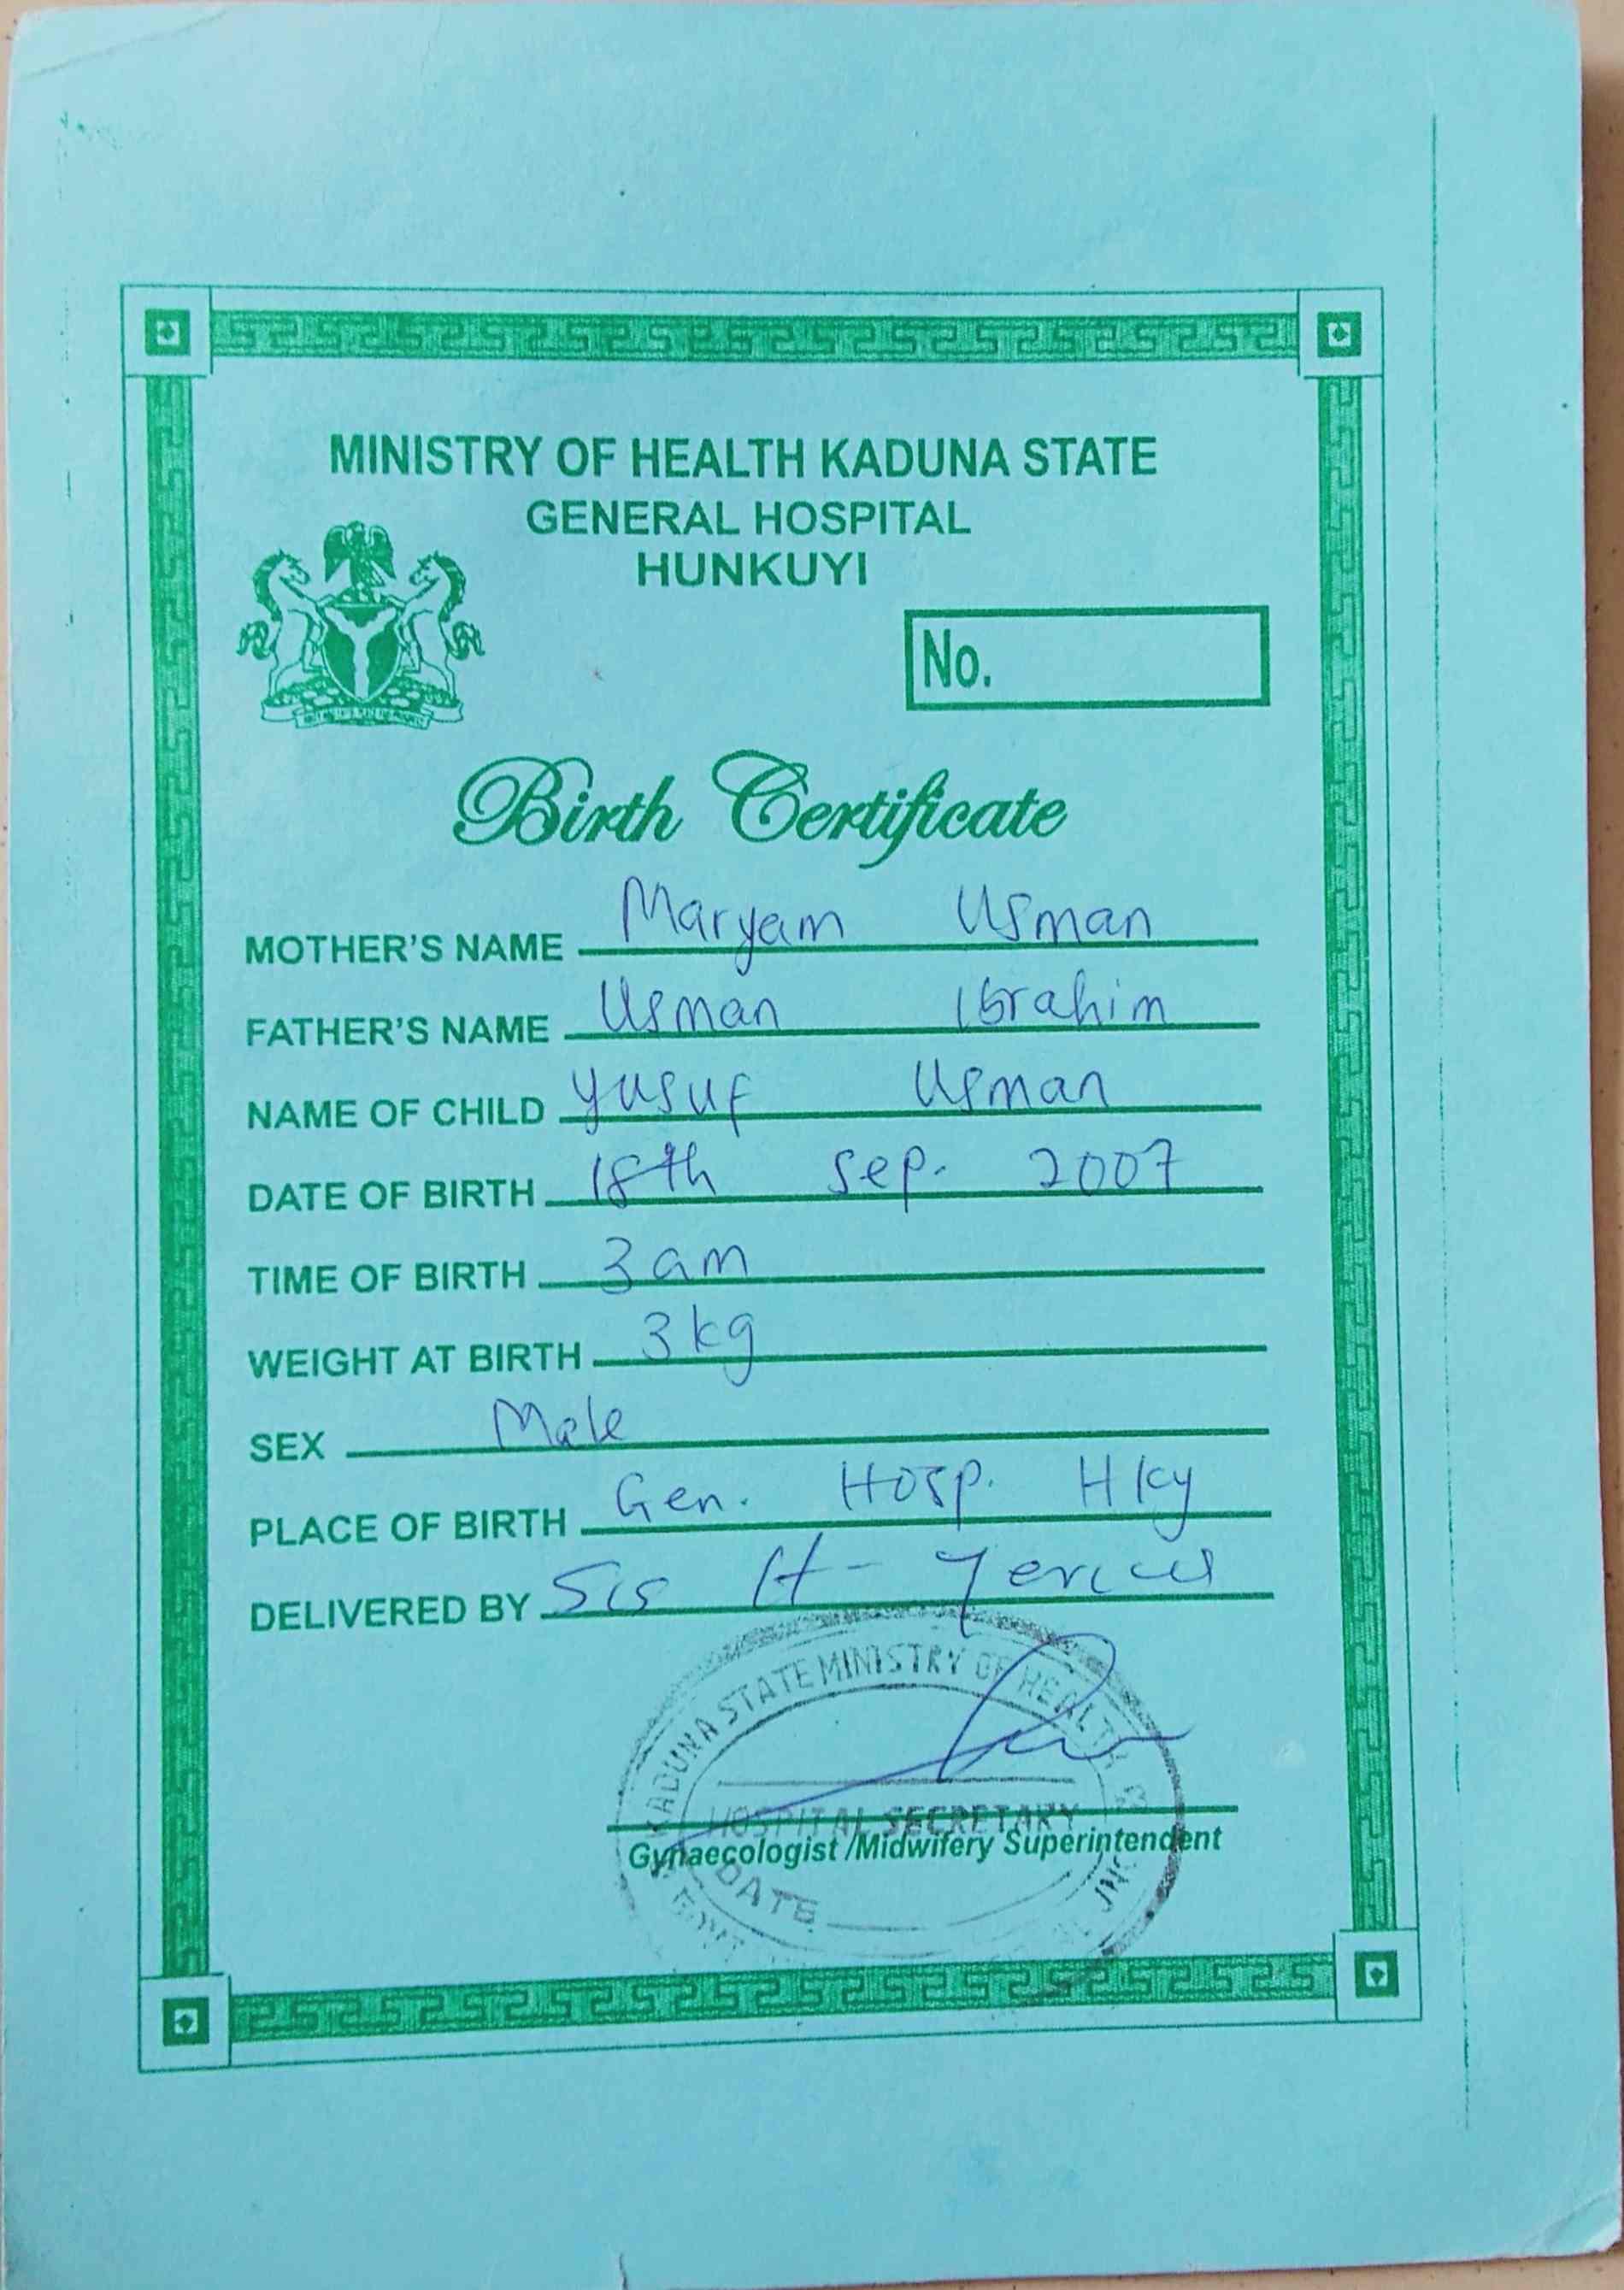 MINISTRY OF HEALTH KADUNA STATE
GENERAL HOSPITAL
HUNKUYI
No.
Birth Certificate
MOTHER'S NAME Maryam Usman
FATHER'S NAME Usman Ibrahim
NAME OF CHILD Yusuf Usman
DATE OF BIRTH 18th Sep. 2007
TIME OF BIRTH 3am
WEIGHT AT BIRTH 3kg
SEX Male
PLACE OF BIRTH Gen. Hosp. Hky
DELIVERED BY Sis H-
KADUNA STATE MINISTRY OF HEALTH
HOSPITAL SECRETARY
Gynaecologist /Midwifery Superintendent
DATE